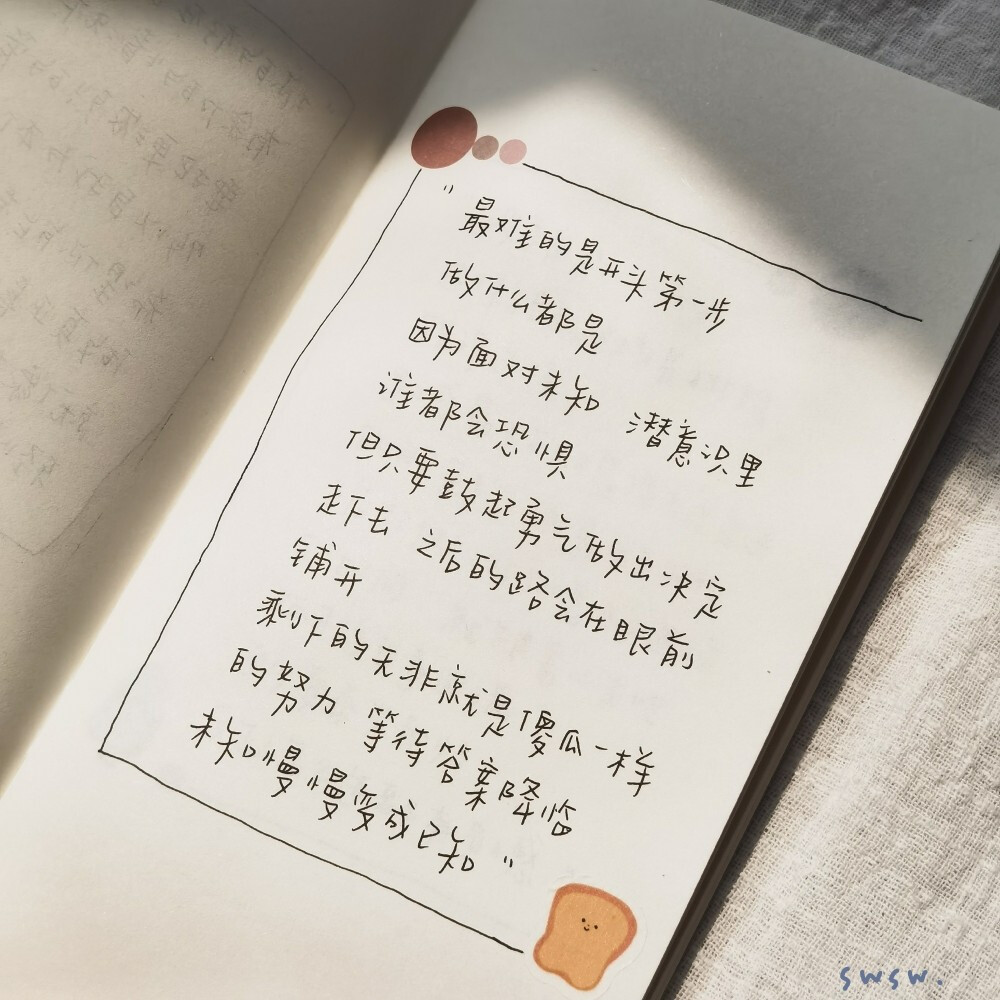 "最难的是开头第一步
做什么都是
因为面对未知 潜意识里
谁都会恐惧
但只要鼓起勇气做出决定
走下去 之后的路会在眼前
铺开
剩下的无非就是傻瓜一样
的努力 等待答案降临
未知慢慢变成已知"
swsw.